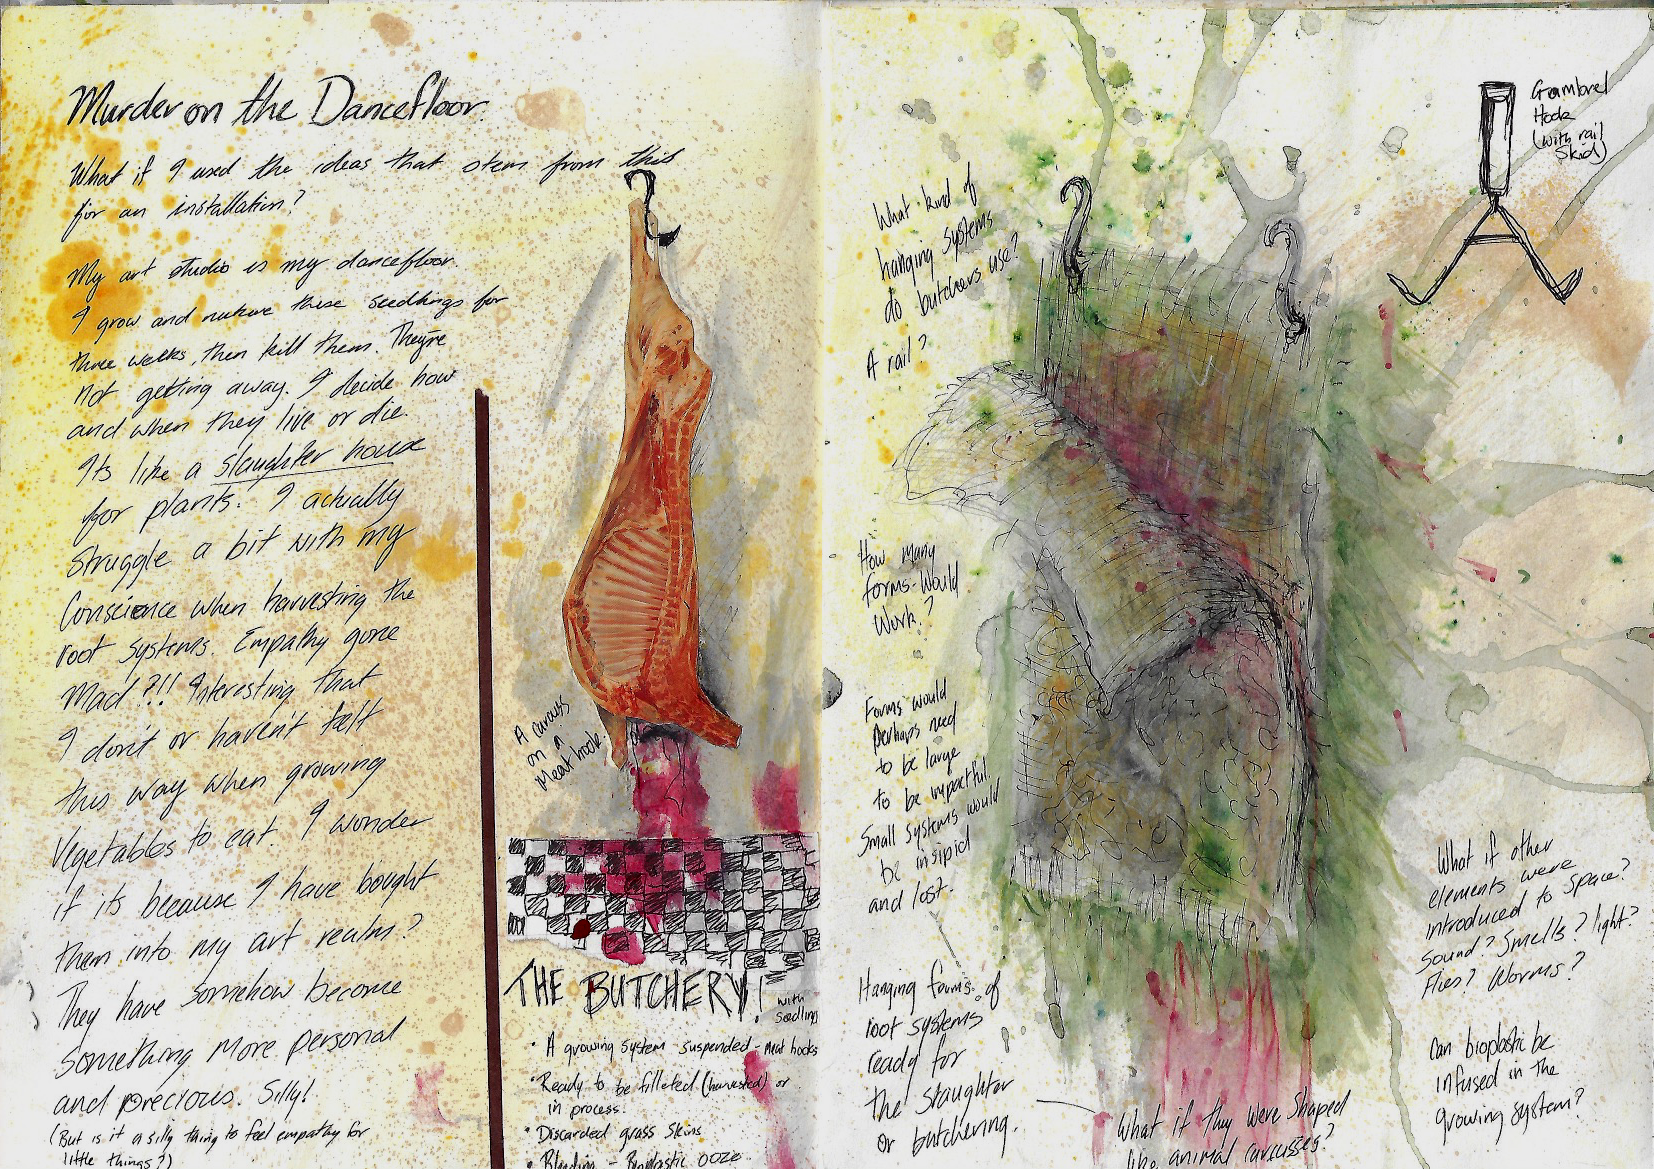 Murder on the Dancefloor.
What if I used the ideas that stem from this
for an installation?
My art studio is my dancefloor.
I grow and nurture these seedlings for
three weeks, then kill them. They're
not getting away. I decide how
and when they live or die.
Its like a slaughter house
for plants. I actually
struggle a bit with my
conscience when harvesting the
root systems. Empathy gone
mad?!! Interesting that
I don't or haven't felt
this way when growing
vegetables to eat. I wonder
if its because I have bought
them into my art realm?
They have somehow become
something more personal
and precious. Silly!
(But is it a silly thing to feel empathy for
little things?)
A carcass
on a
Meat hook.
THE BUTCHERY!
with
seedlings
• A growing system - suspended - meat hooks
• Ready to be filleted (harvested) or
in process.
• Discarded grass skins.
• Bleeding - Bioplastic ooze.
What kind of
hanging systems
do butchers use?
A rail?
How many
forms would
work?
Forms would
perhaps need
to be large
to be impactful.
Small systems would
be insipid
and lost.
Hanging forms of
root systems
ready for
the slaughter
or butchering.
What if they were shaped
like animal carcasses?
Gambrel
Hook
(with rail
skid)
What if other
elements were
introduced to space?
Sound? Smells? light?
Flies? Worms?
Can bioplastic be
infused in the
growing system?